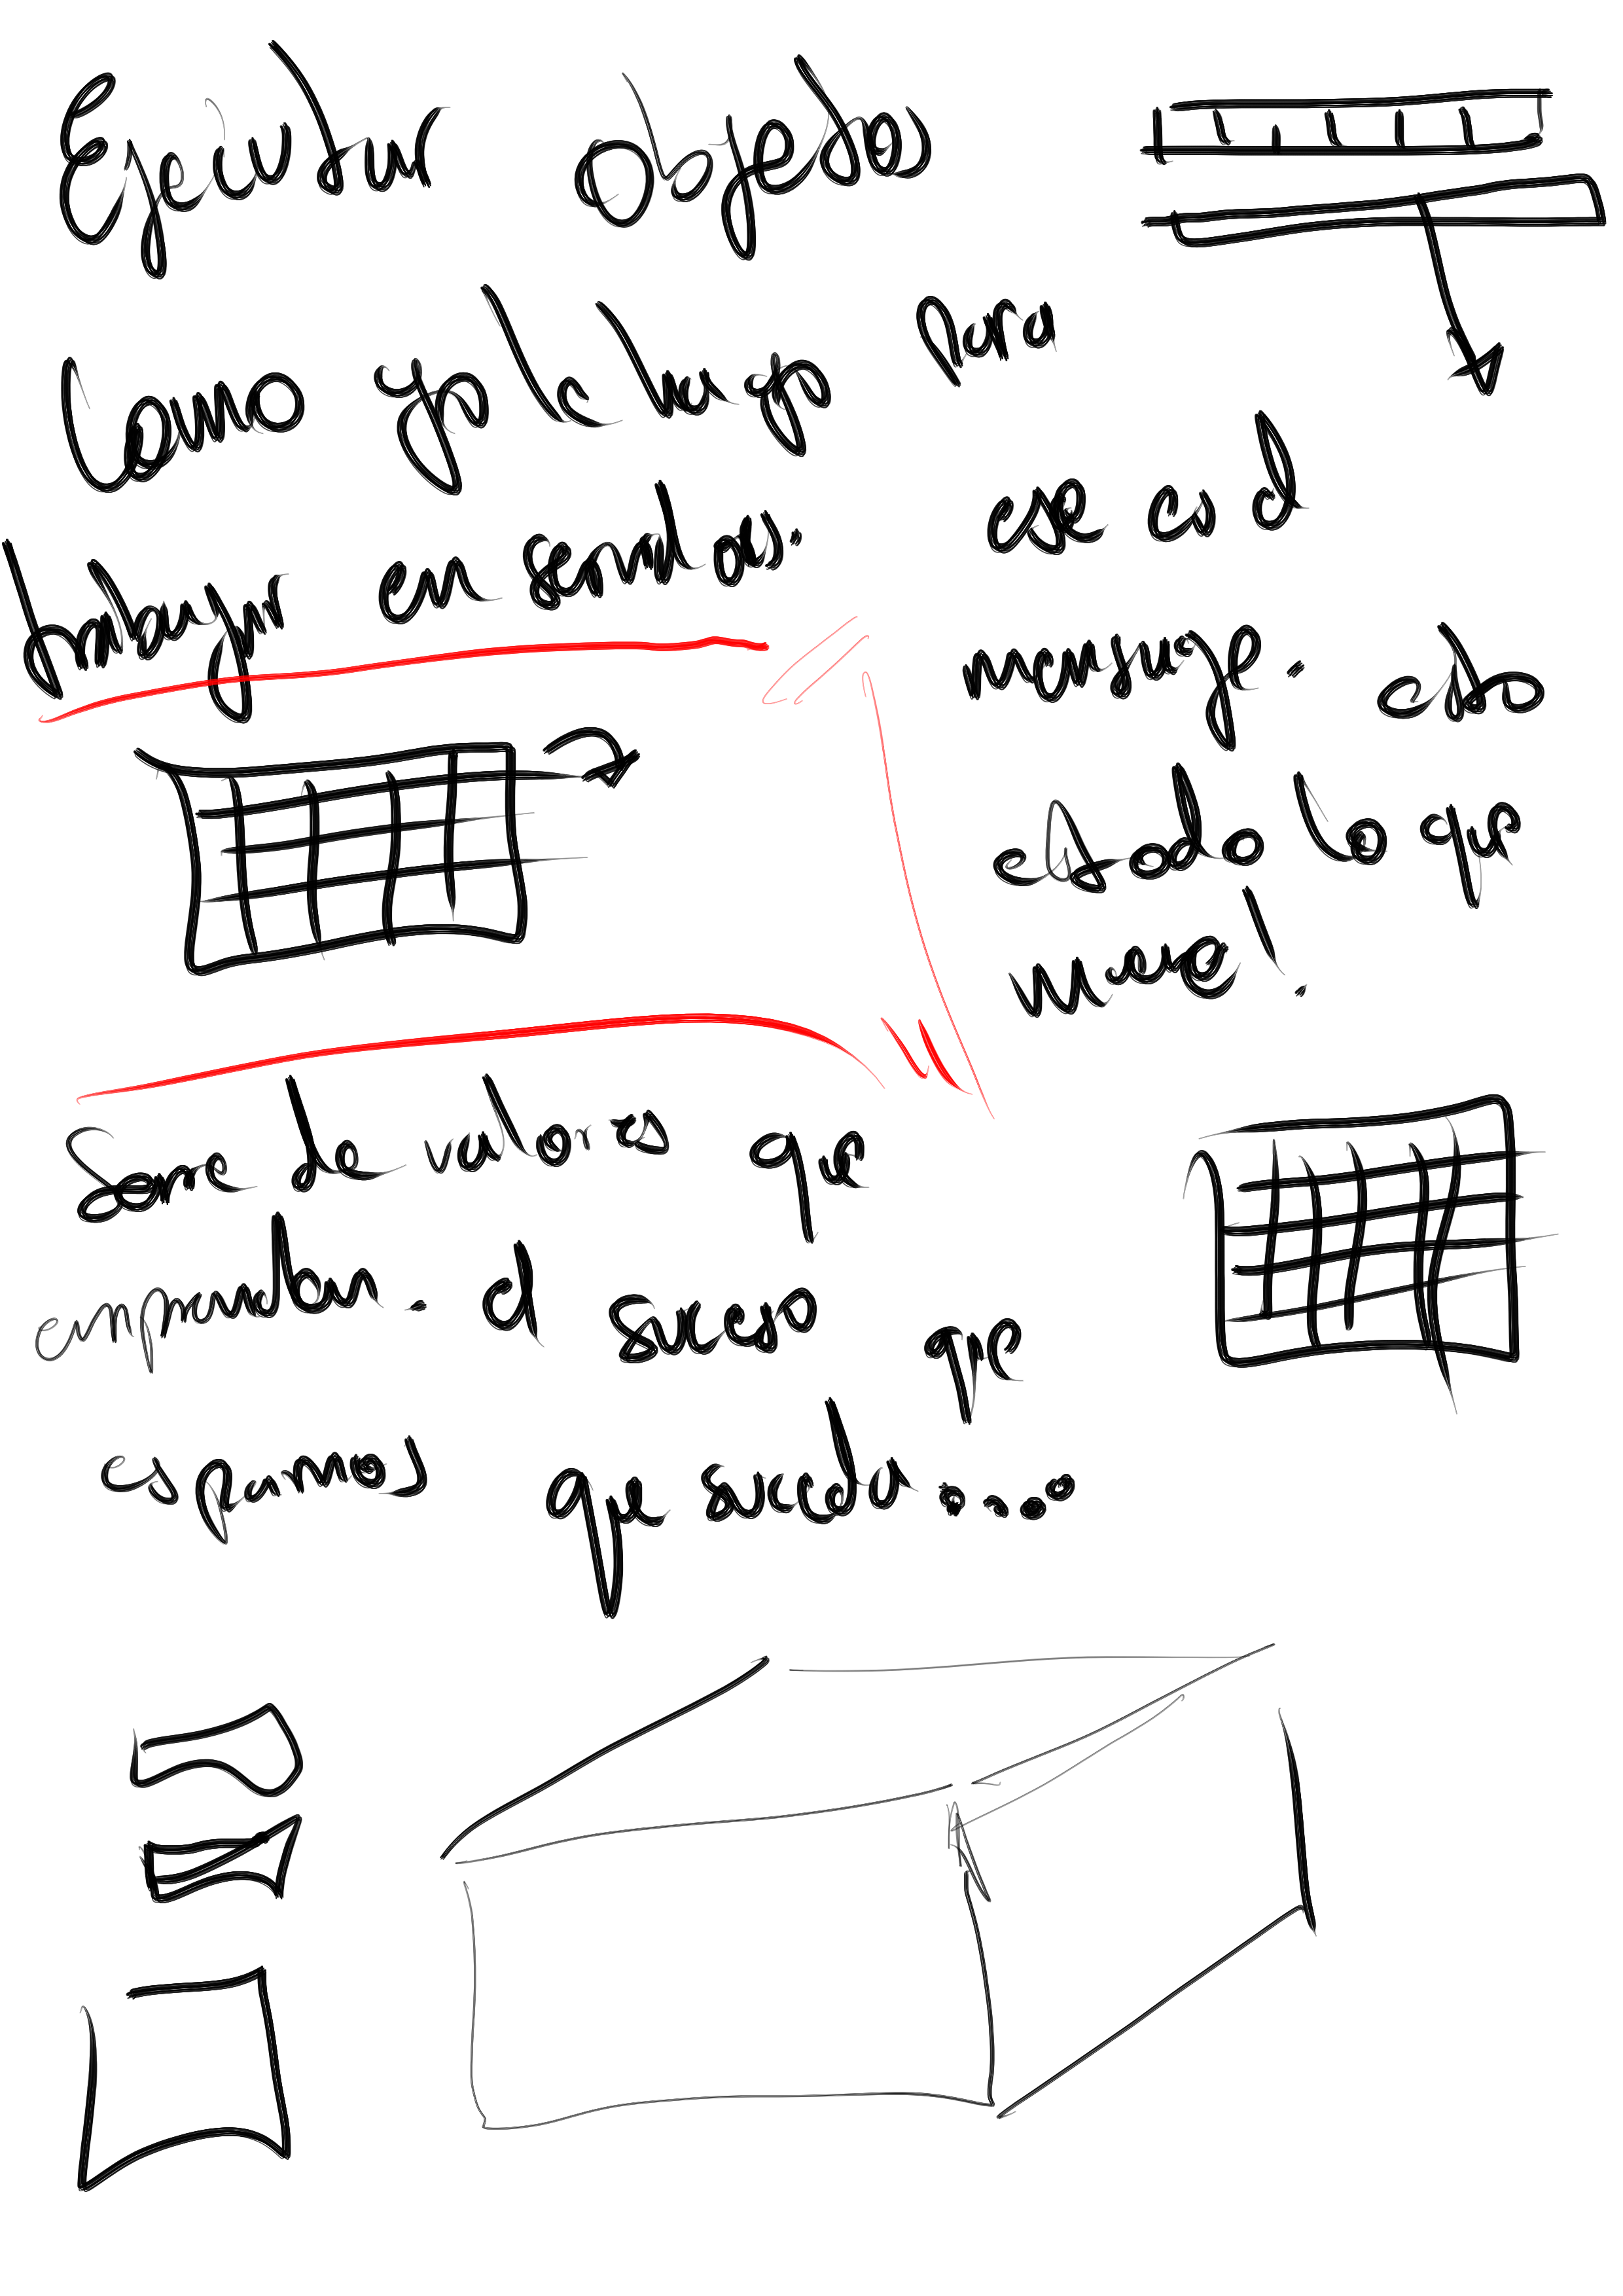 Ejecutar objetos
Como yo le hago para
trabajar en semillas.
ese es el
mensaje. esto
es todo lo que
mare!
Serie de valores que
emprenden. el suceso que
esperamos que suceda....